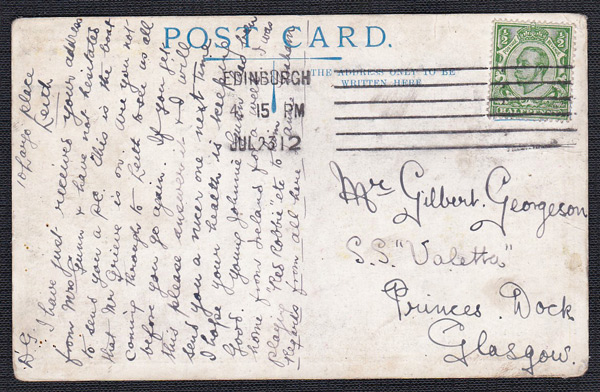 POST CARD.
THE ADDRESS ONLY TO BE
WRITTEN HERE
EDINBURGH
4 15 PM
JUL 23 12
HALFPENNY
Mr Gilbert Georgeson
S.S. "Valetta"
Princes Dock
Glasgow.
Place
Leith
D G I have just received your address
from Mrs Gunn & have not hesitated
to send you a pc. This is the boat
that Mr Grieve is on. Are you not
coming through to Leith to see us all
before you go again. If you get
this please answer it & I will
send you a nicer one next time
I hope your health is keeping
good. Young Johnnie
home from Iceland for a I was
playing "Red Robbie" to him
Regards from all here.